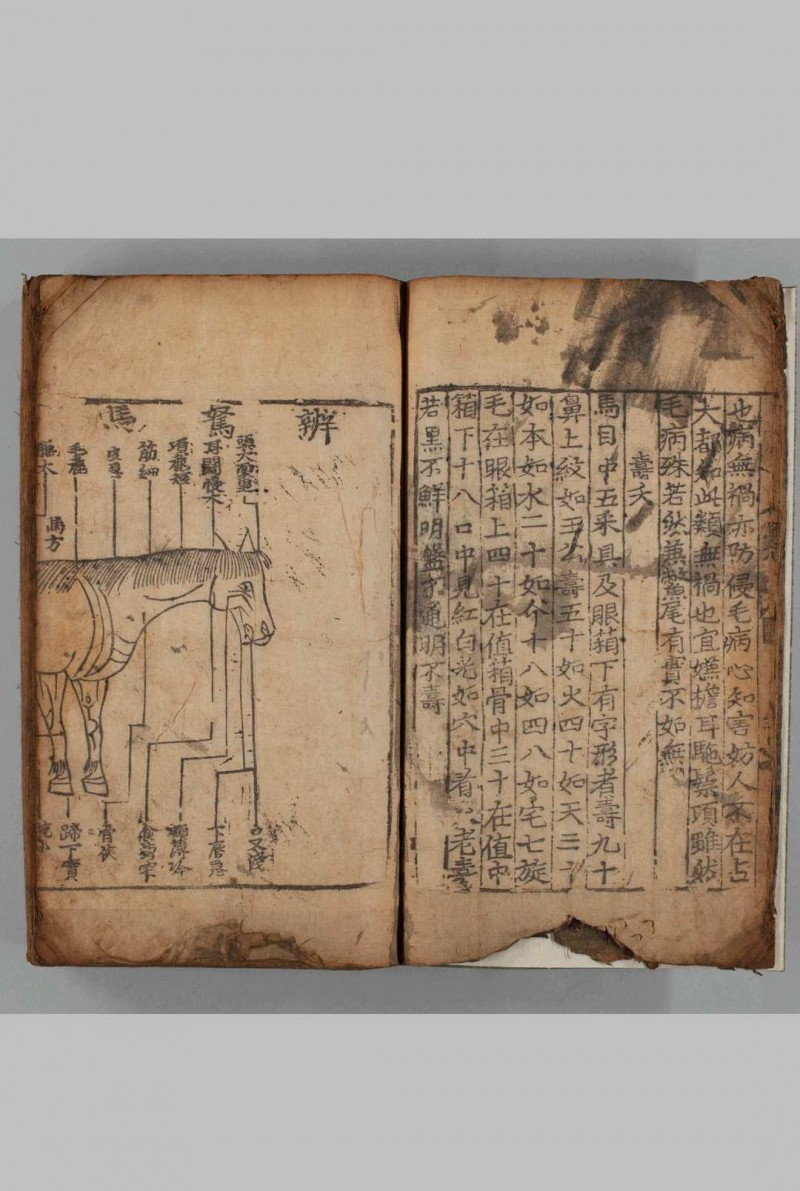 也病無禍亦防侵毛病心知害妨人不在占
大都如此類無禍也宜嫌檐耳駞鬃項雖然
毛病殊若然兼鱉尾有實不如無
壽夭
馬目中五采具及眼箱下有字形者壽九十
鼻上紋如王公壽五十如火四十如天三十
如本如水二十如个十八如四八如宅七旋
毛在眼箱上四十在值箱骨中三十在值中
箱下十八口中見紅白光如穴中看老壽
若黑不鮮明盤不通明不壽
辨駑馬
頭大而重
耳闊慢大
項麄短
筋細
皮
毛
大
馬方
口叉淺
下唇
骨狹
蹄下實